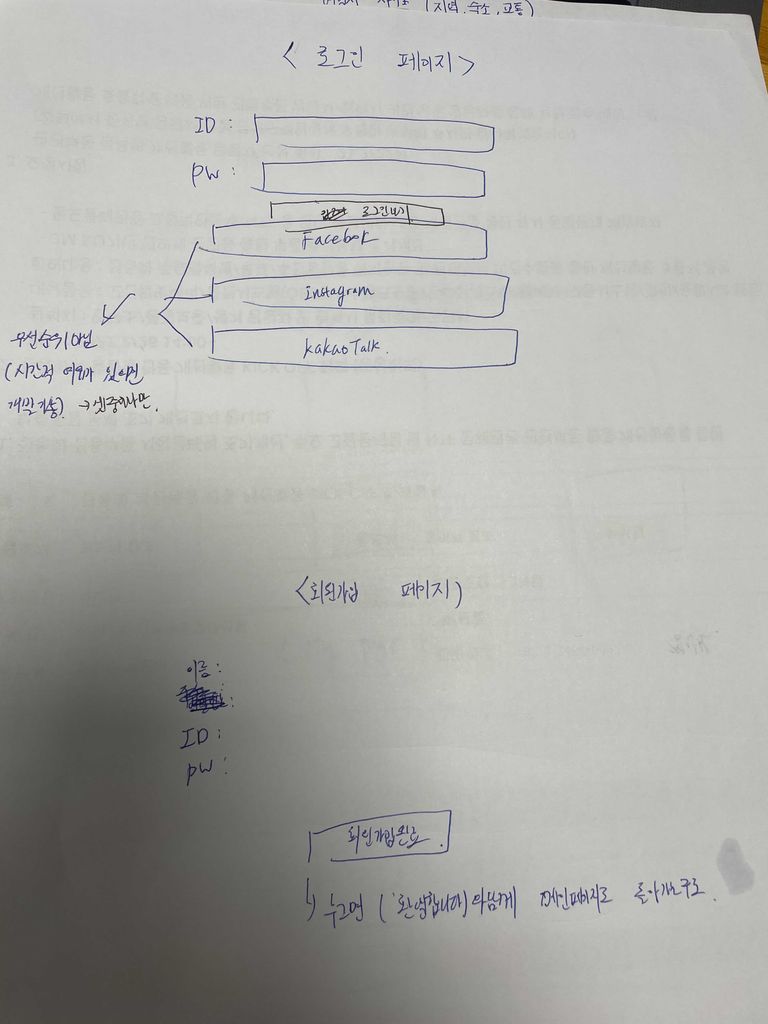 (지역, 숙소, 교통)
< 로그인 페이지 >
ID :
PW :
로그인하기
Facebook
Instagram
kakao Talk.
우선순위 아님
(시간적 여유가 있으면
개발 가능) → 셋 중 하나만.
<회원가입 페이지>
이름 :
ID :
PW :
회원가입 완료
누르면 (환영합니다)와 함께 메인페이지로 돌아가는 구조.